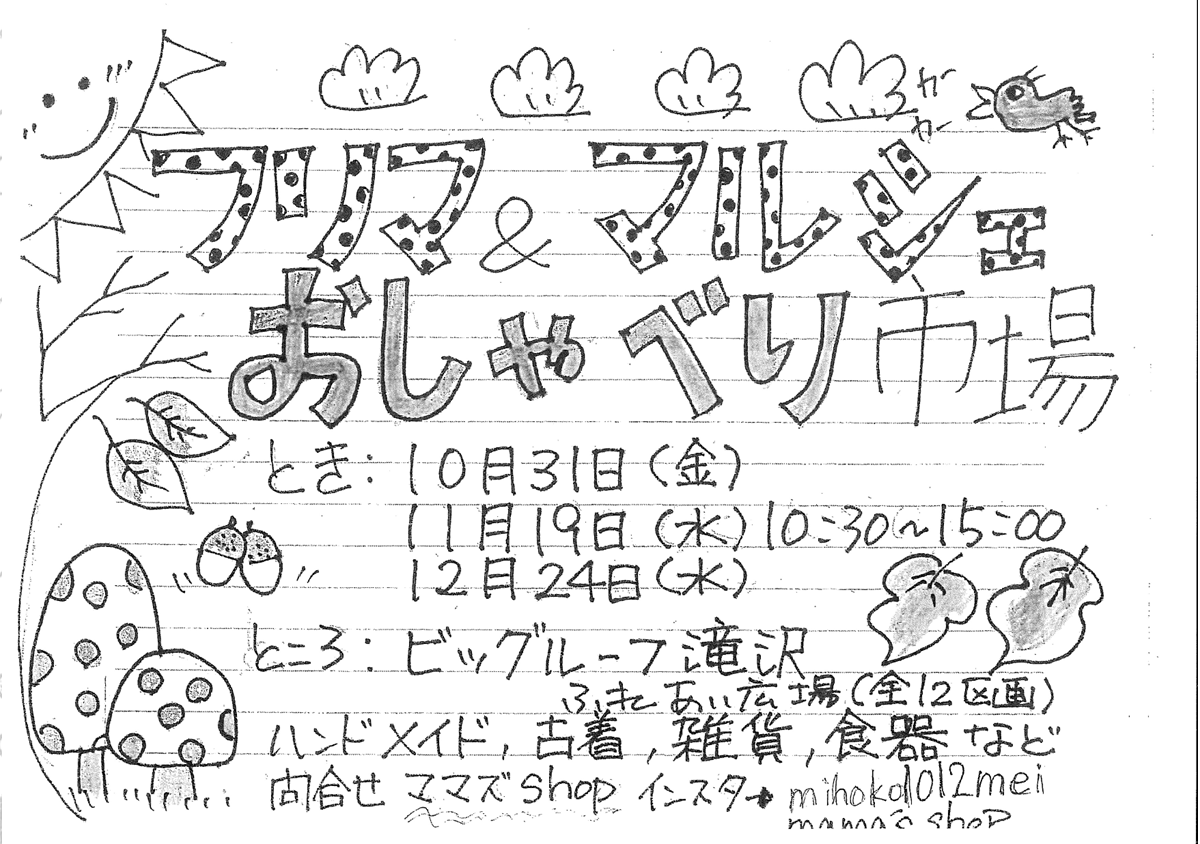 カー
カー
フリマ & マルシェ
おしゃべり市場
とき: 10月31日(金)
11月19日(水) 10:30~15:00
12月24日(水)
ところ: ビッグルーフ滝沢
ふれあい広場(全12区画)
ハンドメイド, 古着, 雑貨, 食器 など
問合せ ママズshop インスタ→ mihoko1012mei
mama's shop